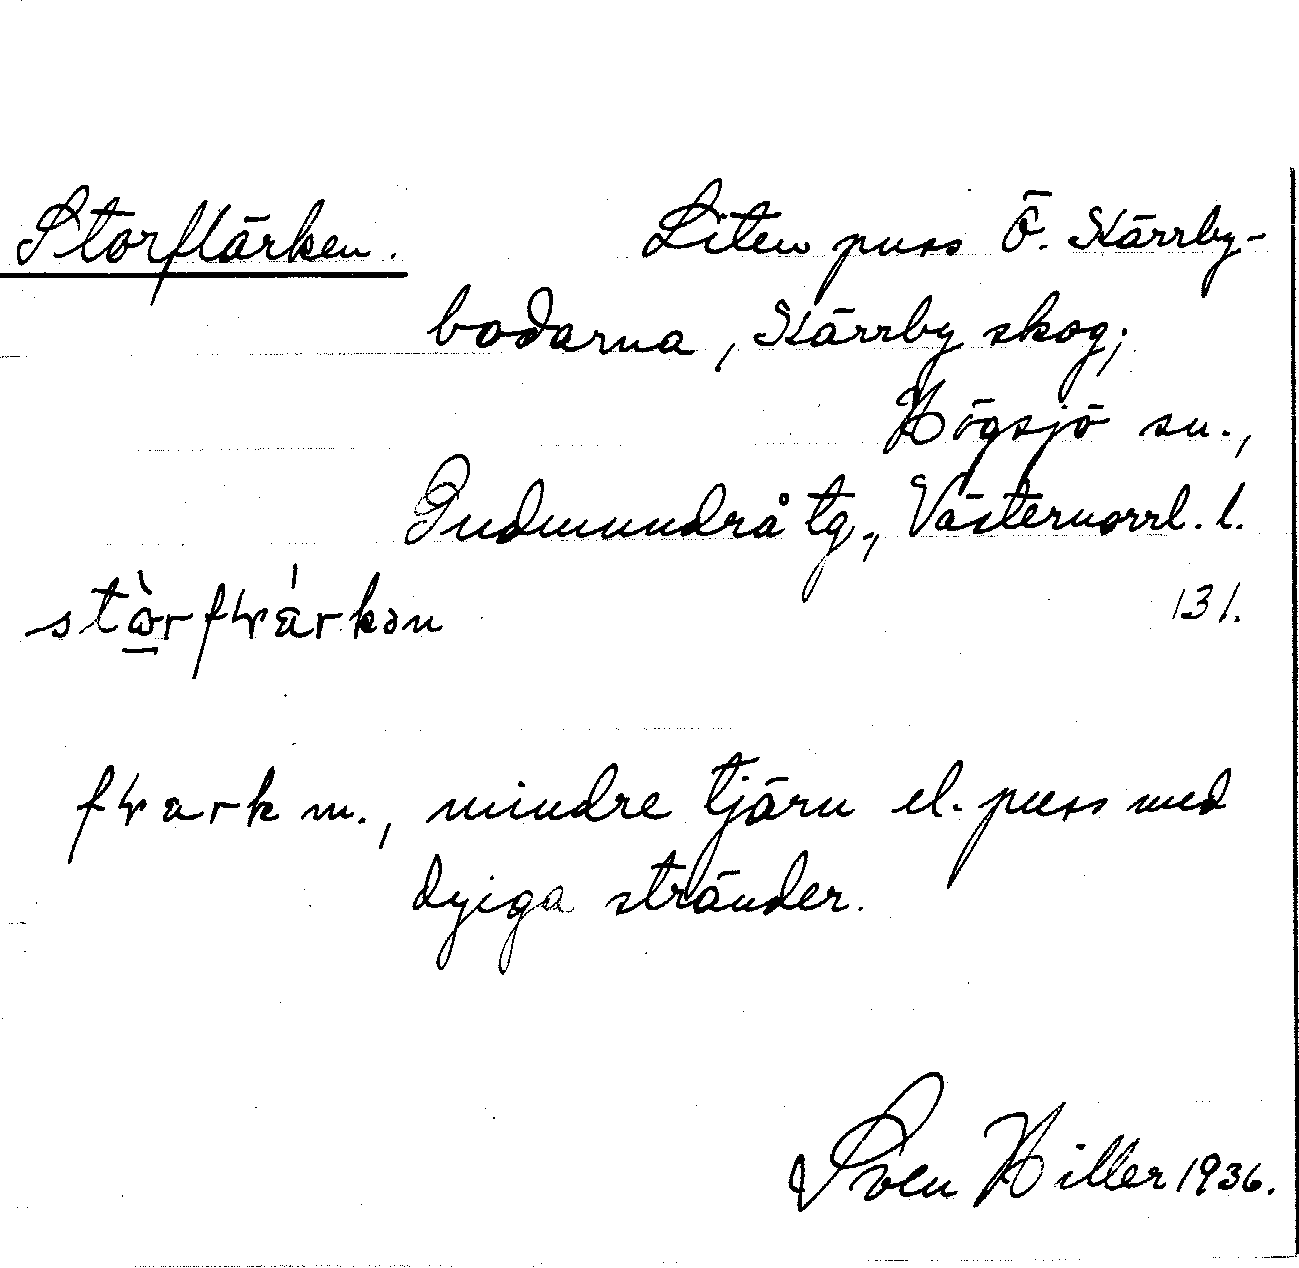 Storflärken. Liten puss Ö. Kärrby-
bodarna, Kärrby skog;
Högsjö sn.,
Gudmundrå tg., Västernorrl. l.
131.
mindre tjärn el. puss med
dyiga stränder.
Sven Hiller 1936.